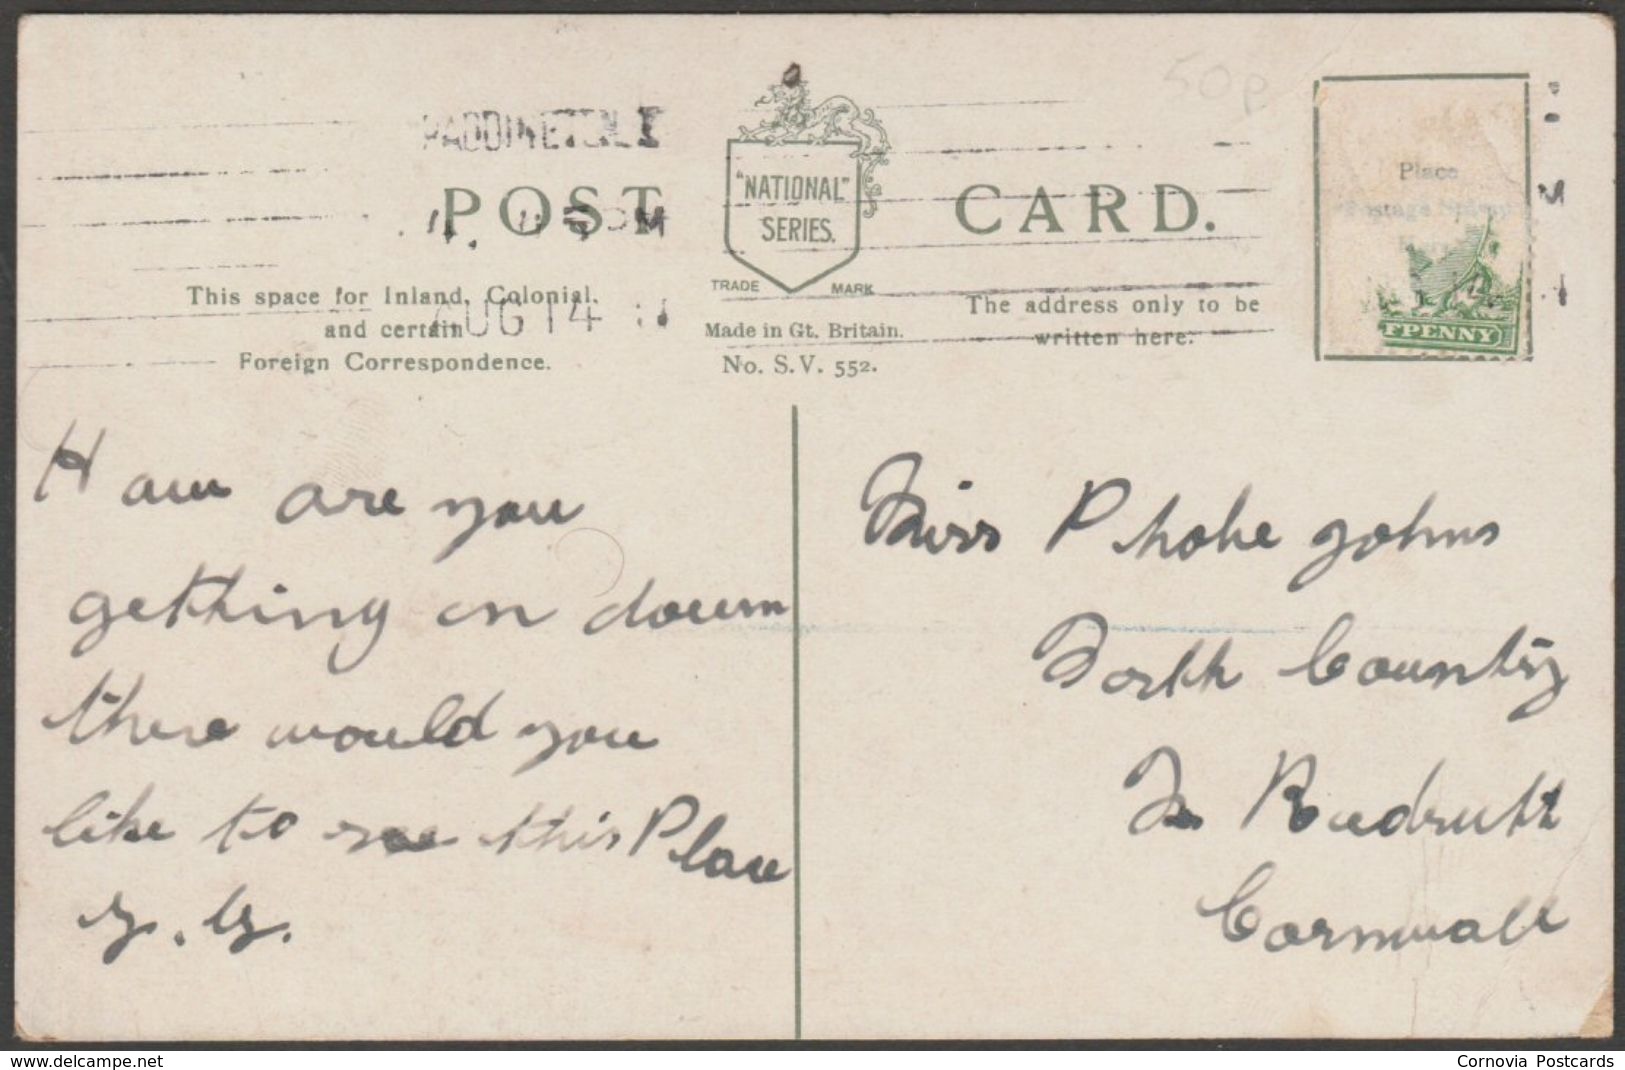 50p
PADDINGTON
POST CARD.
"NATIONAL"
SERIES.
TRADE MARK
AUG 14 11
This space for Inland, Colonial,
and certain
Foreign Correspondence.
Made in Gt. Britain.
No. S.V. 552.
The address only to be
written here.
Place
Postage Stamp
FPENNY
H aw are you
getthing on down
there would you
like to see this Place
Miss Phobe Johns
North Country
Nr Rudruth
Cornwall
www.delcampe.net
Cornovia Postcards